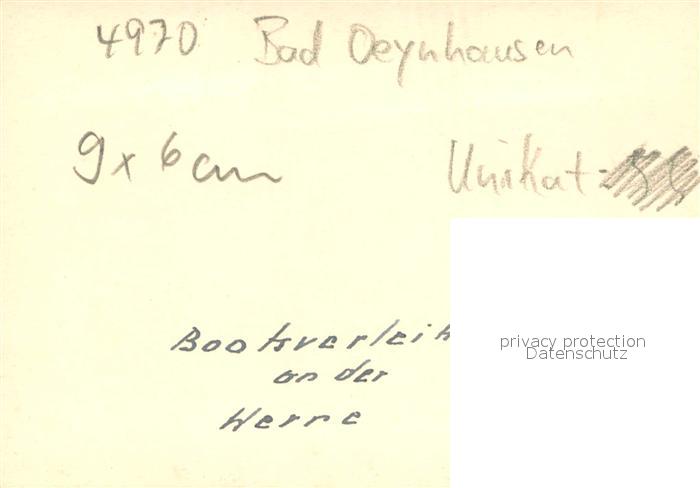 4970 Bad Oeynhausen
9 x 6 cm Unikat
Bootsverleih
an der
Werre
privacy protection
Datenschutz